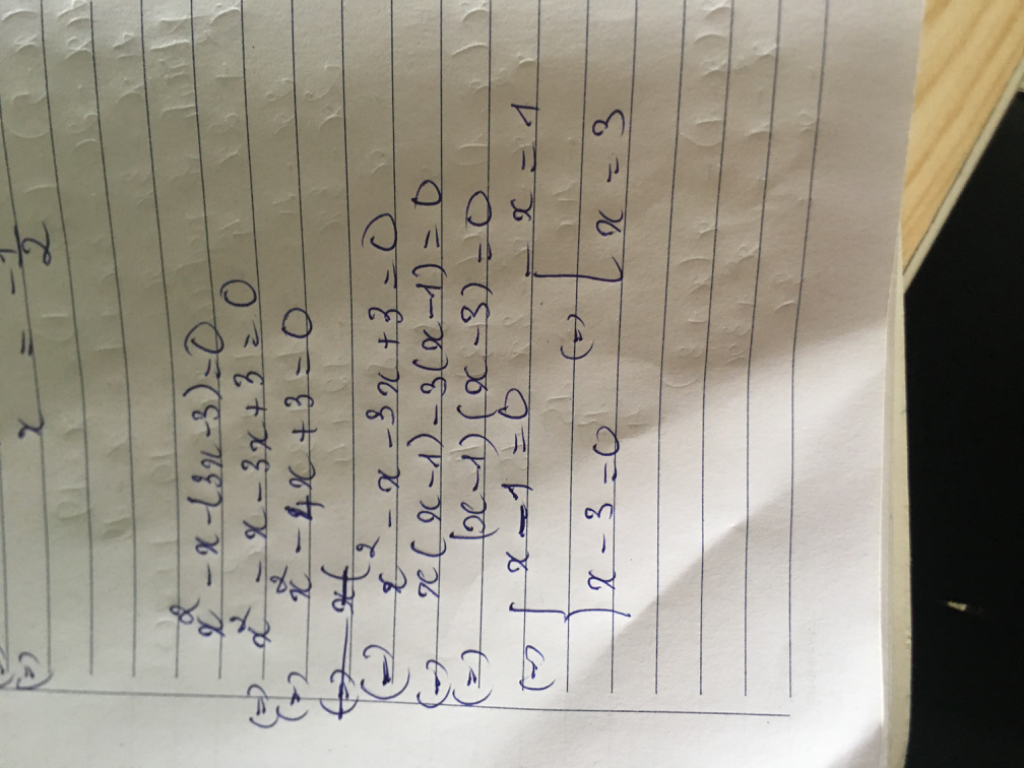 (=) x = -1/2
x² - x - (3x - 3) = 0
(=) x² - x - 3x + 3 = 0
(=) x² - 4x + 3 = 0
(=) x(
(=) x² - x - 3x + 3 = 0
(=) x(x - 1) - 3(x - 1) = 0
(=) (x - 1)(x - 3) = 0
(=) [ x - 1 = 0 (=) [ x = 1
x - 3 = 0 x = 3